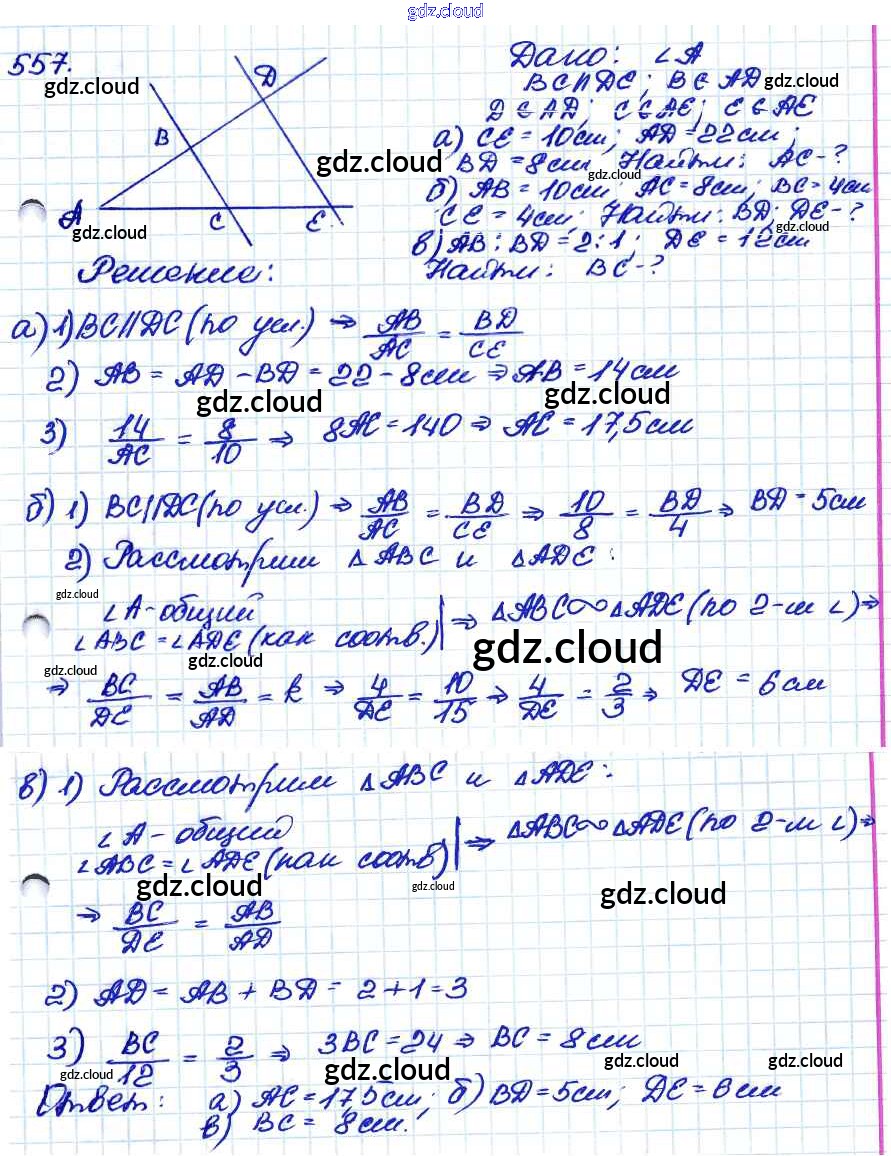 gdz.cloud
557.
gdz.cloud
D
B
A
C
E
gdz.cloud
gdz.cloud
Дано: ∠A
BC∥DE; B ∈ AD gdz.cloud
D ∈ AD; C ∈ AE; E ∈ AE
а) CE = 10 см; AD = 22 см;
BD = 8 см Найти: AC - ?
gdz.cloud
б) AB = 10 см; AC = 8 см; BC = 4 см
CE = 4 см; Найти: BD; DE - ?
gdz.cloud
в) AB : BD = 2 : 1; DE = 12 см
Найти: BC - ?
Решение:
а) 1) BC∥DE (по усл.) ⇒ AB/AC = BD/CE
2) AB = AD - BD = 22 - 8 см ⇒ AB = 14 см
gdz.cloud gdz.cloud
3) 14/AC = 8/10 ⇒ 8AC = 140 ⇒ AC = 17,5 см
б) 1) BC∥DE (по усл.) ⇒ AB/AC = BD/CE ⇒ 10/8 = BD/4 ⇒ BD = 5 см
2) Рассмотрим ∆ABC и ∆ADE:
gdz.cloud
∠A - общий
∠ABC = ∠ADE (как соотв.) | ⇒ ∆ABC∾∆ADE (по 2-м ∠) ⇒
gdz.cloud gdz.cloud gdz.cloud
⇒ BC/DE = AB/AD = k ⇒ 4/DE = 10/15 ⇒ 4/DE = 2/3 ⇒ DE = 6 см
в) 1) Рассмотрим ∆ABC и ∆ADE:
∠A - общий
∠ABC = ∠ADE (как соотв) | ⇒ ∆ABC∾∆ADE (по 2-м ∠) ⇒
gdz.cloud gdz.cloud gdz.cloud
⇒ BC/DE = AB/AD
2) AD = AB + BD = 2 + 1 = 3
3) BC/12 = 2/3 ⇒ 3BC = 24 ⇒ BC = 8 см
gdz.cloud gdz.cloud gdz.cloud gdz.cloud
Ответ: а) AC = 17,5 см; б) BD = 5 см; DE = 6 см
в) BC = 8 см.